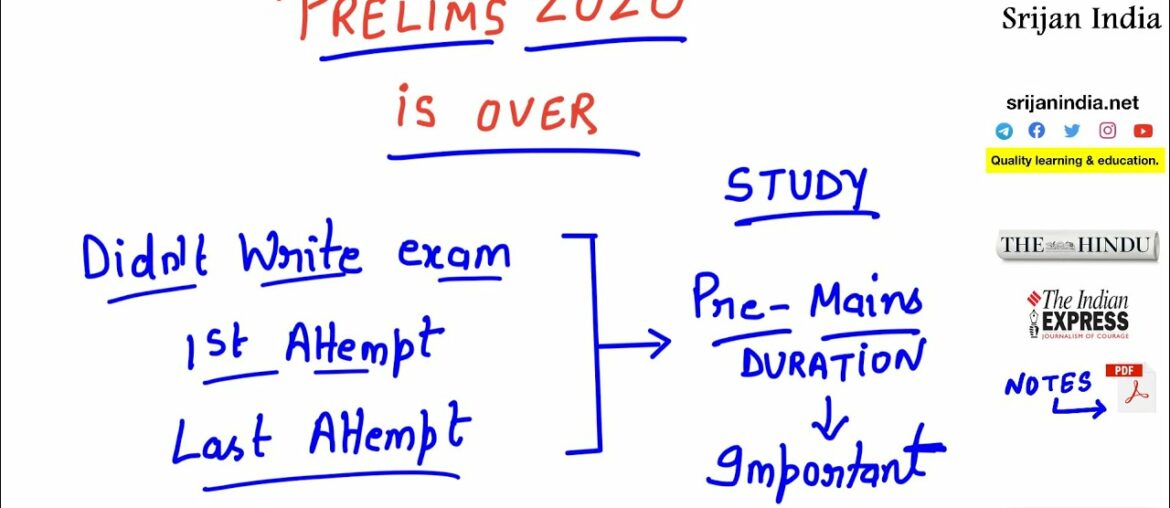 PRELIMS 2020
is OVER
Didn't Write exam
1st Attempt
Last Attempt
STUDY
Pre-Mains
DURATION
Important
Srijan India
srijanindia.net
Quality learning & education.
THE HINDU
The Indian
EXPRESS
JOURNALISM OF COURAGE
NOTES
PDF